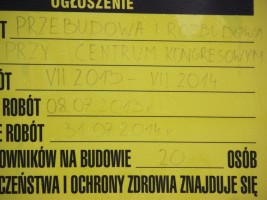 OGŁOSZENIE
T PRZEBUDOWA I ROZBUDOWA
PRZY CENTRUM KONGRESOWYM
ÓT VII 2013 - VII 2014
ROBÓT 08.07.2013r.
E ROBÓT 31.07.2014r.
OWNIKÓW NA BUDOWIE 20 OSÓB
CZEŃSTWA I OCHRONY ZDROWIA ZNAJDUJE SIĘ